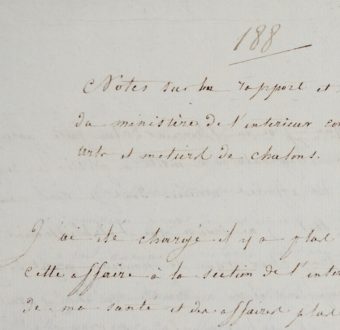 188
Notes sur le rapport et
du ministère de l'interieur con
arts et metiers de chalons.
J'ai été chargé il y a plus
cette affaire à la section de l'inter
de ma santé et des affaires plus